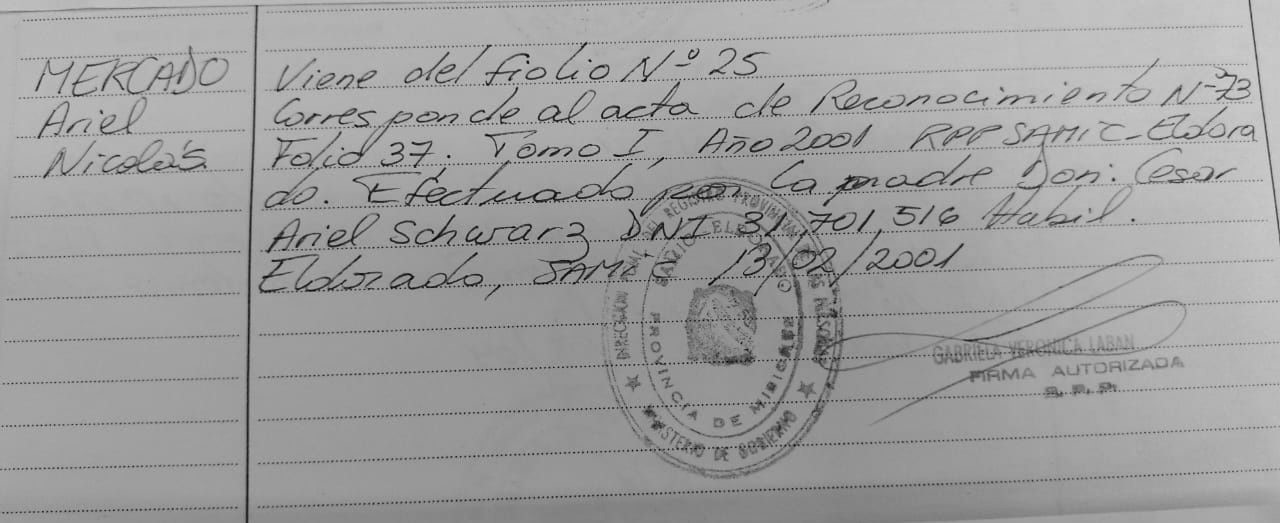 MERCADO
Ariel
Nicolás.
Viene del fiolio Nº 25
Corresponde al acta de Reconocimiento Nº 73
Folio 37. Tomo I, Año 2001 RPPSAMIC-Eldora
do. Efectuado por la madre Don: Cesar
Ariel Schwarz DNI 31,701,516 Habil.
Eldorado, SAMIC 13/02/2001
DEL REGISTRO PROVINCIAL DE LAS PERSONAS
PROVINCIA DE MISIONES
MINISTERIO DE GOBIERNO
GABRIELA VERONICA LABAN
FIRMA AUTORIZADA
R. P. P.